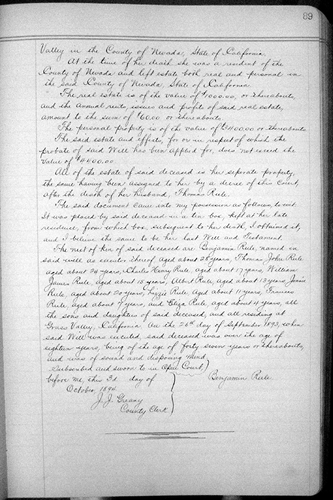 89
Valley in the County of Nevada, State of California.
At the time of her death she was a resident of the
County of Nevada and left estate both real and personal in
the said County of Nevada, State of California.
The real estate is of the value of $ or thereabouts
and the annual rents, issues and profits of said real estate,
amount to the sum of $60.00 or thereabouts.
The personal property is of the value of or thereabouts.
The said estate and effects, for or in respect of which the
probate of said Will has been applied for, does not exceed the
value of
All of the estate of said deceased is her separate property,
the same having been assigned to her by a decree of this Court,
after the death of her husband, Thomas Rule.
The said document came into my possession as follows to-wit:
It was placed by said deceased in a tin box, kept at her late
residence, from which box, subsequent to her death, I obtained it,
and I believe the same to be her last Will and Testament.
The next of kin of said deceased are Benjamin Rule, named in
said will as executor thereof, aged about years, Thomas John Rule
aged about years, Charles Henry Rule, aged about 17 years, William
James Rule, aged about 15 years, Albert Rule, aged about 13 years,
Rule, aged about years, Lizzie Rule, aged about 11 years,
Rule, aged about years, and Rule, aged about years, all
the sons and daughters of said deceased, and all residing at
Grass Valley, California. On the day of September 1893, when
said Will was executed, said deceased was over the age of
eighteen years, being of the age of forty seven years or thereabouts,
and was of sound and disposing mind.
Subscribed and sworn to in Open Court
before me, this 3d. day of
October, 1894. Benjamin Rule.
J. J. Greany
County Clerk